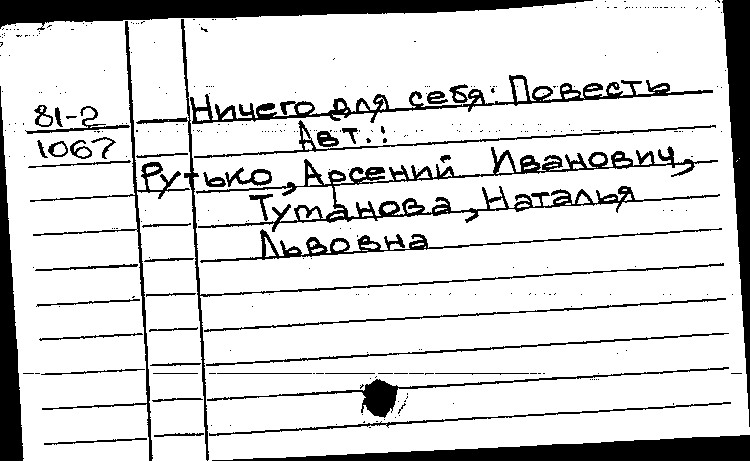 81-2
1067
Ничего для себя: Повесть
Авт.:
Рутько, Арсений Иванович,
Туманова, Наталья
Львовна